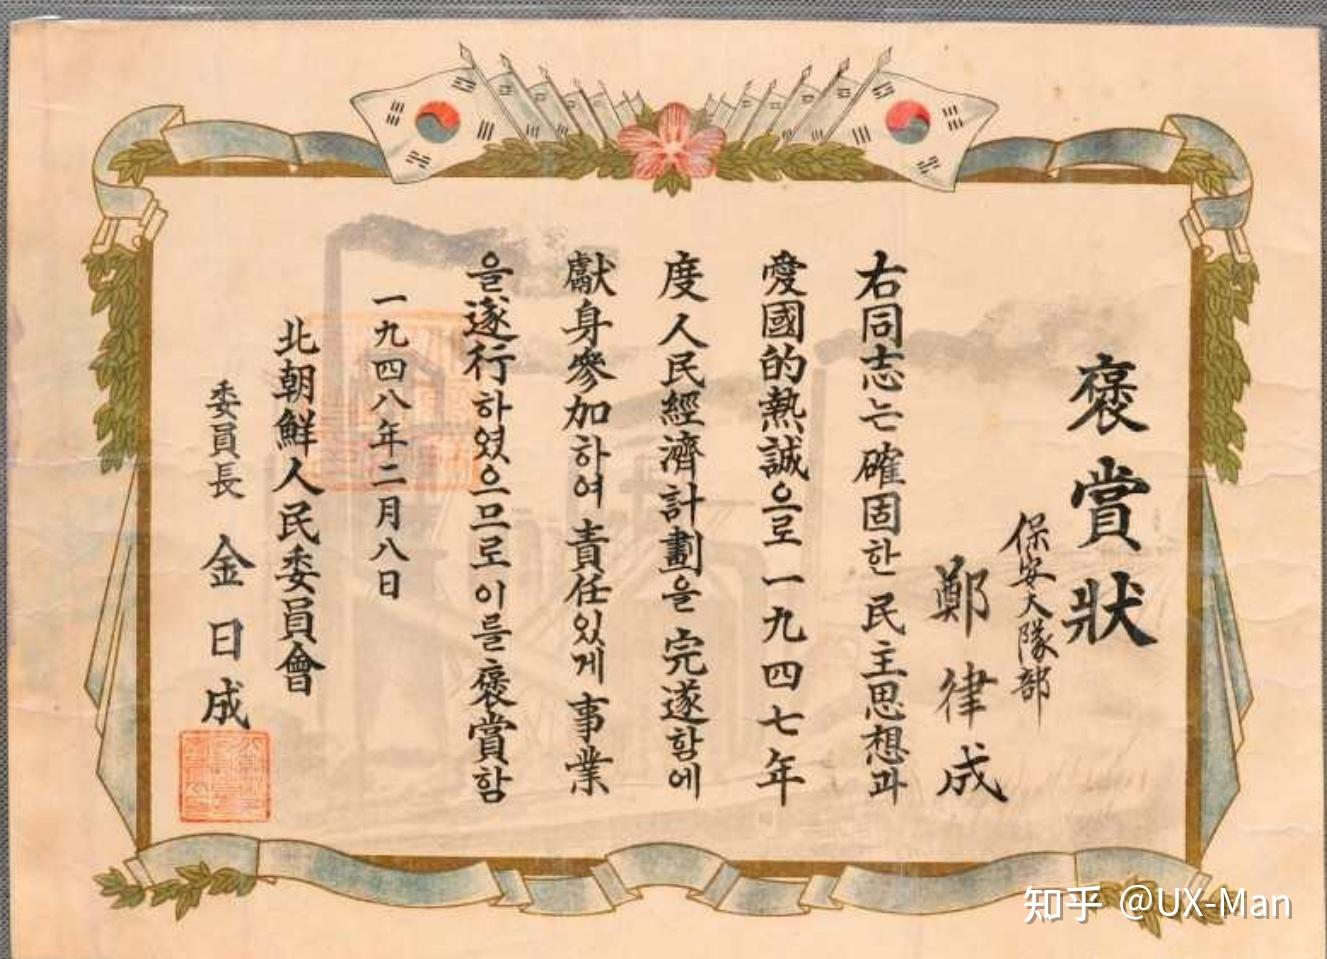 褒賞狀
保安大隊部
鄭律成
右同志는確固한民主思想과
愛國的熱誠으로一九四七年
度人民經濟計劃을完遂함에
獻身參加하여責任있게事業
을遂行하였으므로이를褒賞함
一九四八年二月八日
北朝鮮人民委員會
委員長 金日成
知乎 @UX-Man